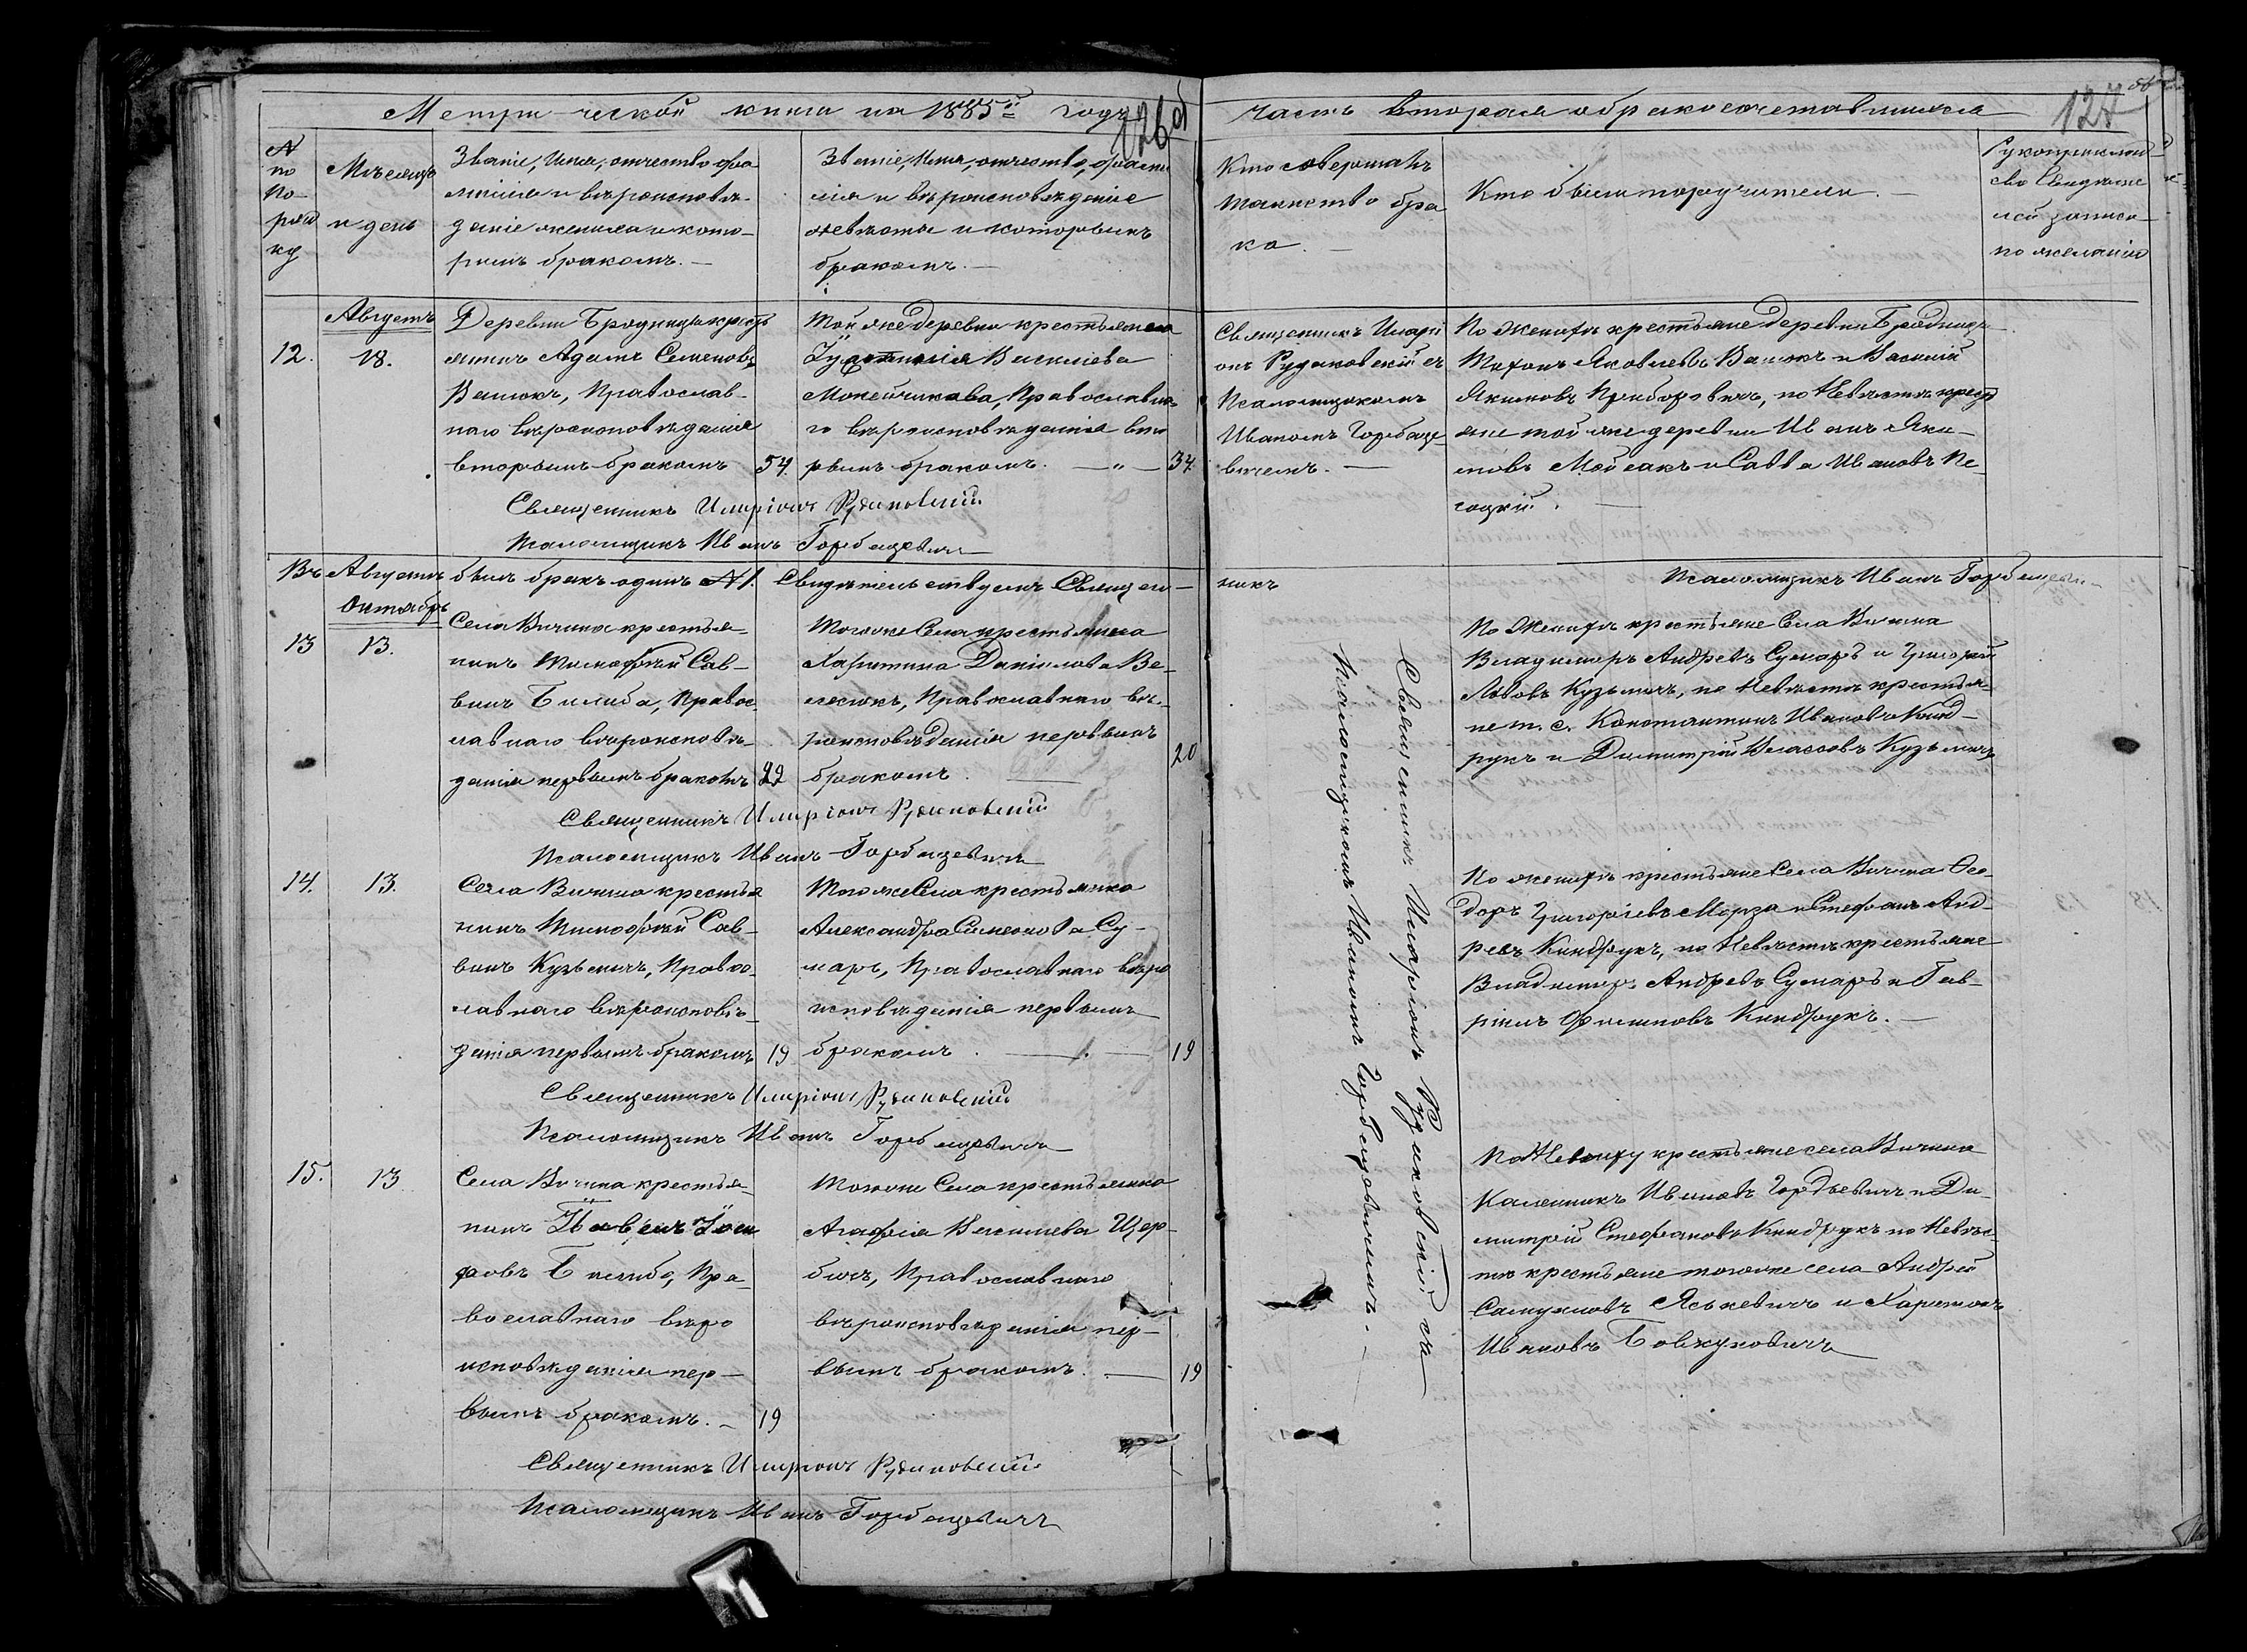 Метрической книги на 1885й годъ
126об
часть вторая о бракосочетавшихся
127
№ по порядку
Мѣсяцъ
и день
Званіе, Имя, отчество, фа
милія и вѣроисповѣ-
даніе жениха и кото-
рымъ бракомъ. —
Званіе, Имя, отчество, фами
лія и вѣроисповѣданіе
невѣсты и которымъ
бракомъ. —
Кто совершалъ
таинство бра
ка. —
Кто были поручители. —
Рукоприклад-
ство свидѣте
лей записи
по желанію
Августъ
12.
18.
Деревни Бродницы кресть
янинъ Адамъ Семеновъ
Велюкъ, Православ-
наго вѣроисповѣданія
вторымъ бракомъ
54.
Той же деревни крестьянка
Іустинія Василіева
Мокейчикова, Православна-
го вѣроисповѣданія вто
рымъ бракомъ. —„—
34.
Священникъ Илари
онъ Рудаковскій съ
Псаломщикомъ
Иваномъ Горбаце-
вичемъ. —
По Женихѣ крестьяне деревни Бродницы
Яковлевъ Велюкъ и Василій
Якимовъ Приборовичъ, по Невѣстѣ кресть
яне той же деревни Иванъ Яки-
мовъ и Савва Ивановъ Пе-
соцкій. —
Священникъ Иларіонъ Рудаковскій
Псаломщикъ Иванъ Горбацевичъ
Въ Августѣ былъ бракъ одинъ №1. Свидѣтельствуемъ Священ-
никъ
Псаломщикъ Иванъ Горбацевичъ
Октябрь
13
13.
Села Вичина крестья-
нинъ Тимофѣй Сав-
винъ Билиба, Правос-
лавнаго вѣроисповѣ-
данія первымъ бракомъ
22
Тогоже Села крестьянка
Харитина Даніилова Ве-
лесюкъ, Православнаго вѣ-
роисповѣданія первымъ
бракомъ. —
20
По Женихѣ крестьяне Села Вичина
Владимиръ Андреевъ Сумаръ и Григорій
Львовъ Кузьмичъ, по Невѣстѣ крестья-
не т. с. Константинъ Ивановъ Кинд-
рукъ и Димитрій Власовъ Кузьмичъ
Священникъ Иларіонъ Рудаковскій
Псаломщикъ Иванъ Горбацевичъ
14.
13.
Села Вичина крестья
нинъ Тимофѣй Сав-
винъ Кузьмичъ, Правос-
лавнаго вѣроисповѣ-
данія первымъ бракомъ
19
Того же Села крестьянка
Александра Симеонова Су-
маръ, Православнаго вѣро
исповѣданія первымъ
бракомъ. —
19
По женихѣ крестьяне Села Вичина Ѳео-
доръ Григоріевъ Морза и Стефанъ Анд-
реевъ Киндрукъ, по Невѣстѣ крестьяне
Владимиръ Андреевъ Сумаръ и Гав-
ріилъ Филиповъ Киндрукъ. —
Священникъ Иларіонъ Рудаковскій
Псаломщикъ Иванъ Горбацевичъ
Священникъ Иларіонъ Рудаковскій съ
Псаломщикомъ Иваномъ Горбацевичемъ. —
15.
13
Села Вичина крестья-
нинъ Павелъ Іоси
фовъ Билиба, Пра-
вославнаго вѣро
исповѣданія пер-
вымъ бракомъ. —
19
Тогоже Села крестьянка
Агафія Василіева Щер-
бичъ, Православнаго
вѣроисповѣданія пер-
вымъ бракомъ. —
19
По Жениху крестьяне села Вичина
Каленникъ Ивановъ Гордѣевичъ и Ди-
митрій Стефановъ Киндрукъ по Невѣс-
тѣ крестьяне тогоже села Андрей
Самуиловъ Яськевичъ и Харитонъ
Ивановъ Бовкуновичъ
Священникъ Иларіонъ Рудаковскій
Псаломщикъ Иванъ Горбацевичъ